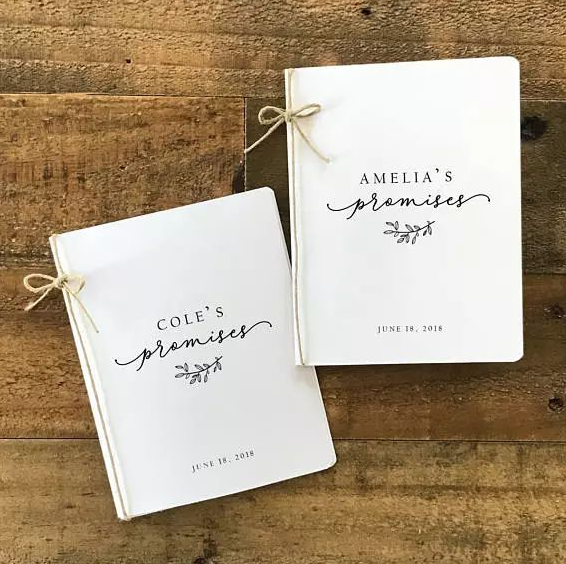 AMELIA'S
promises
JUNE 18, 2018
COLE'S
promises
JUNE 18, 2018